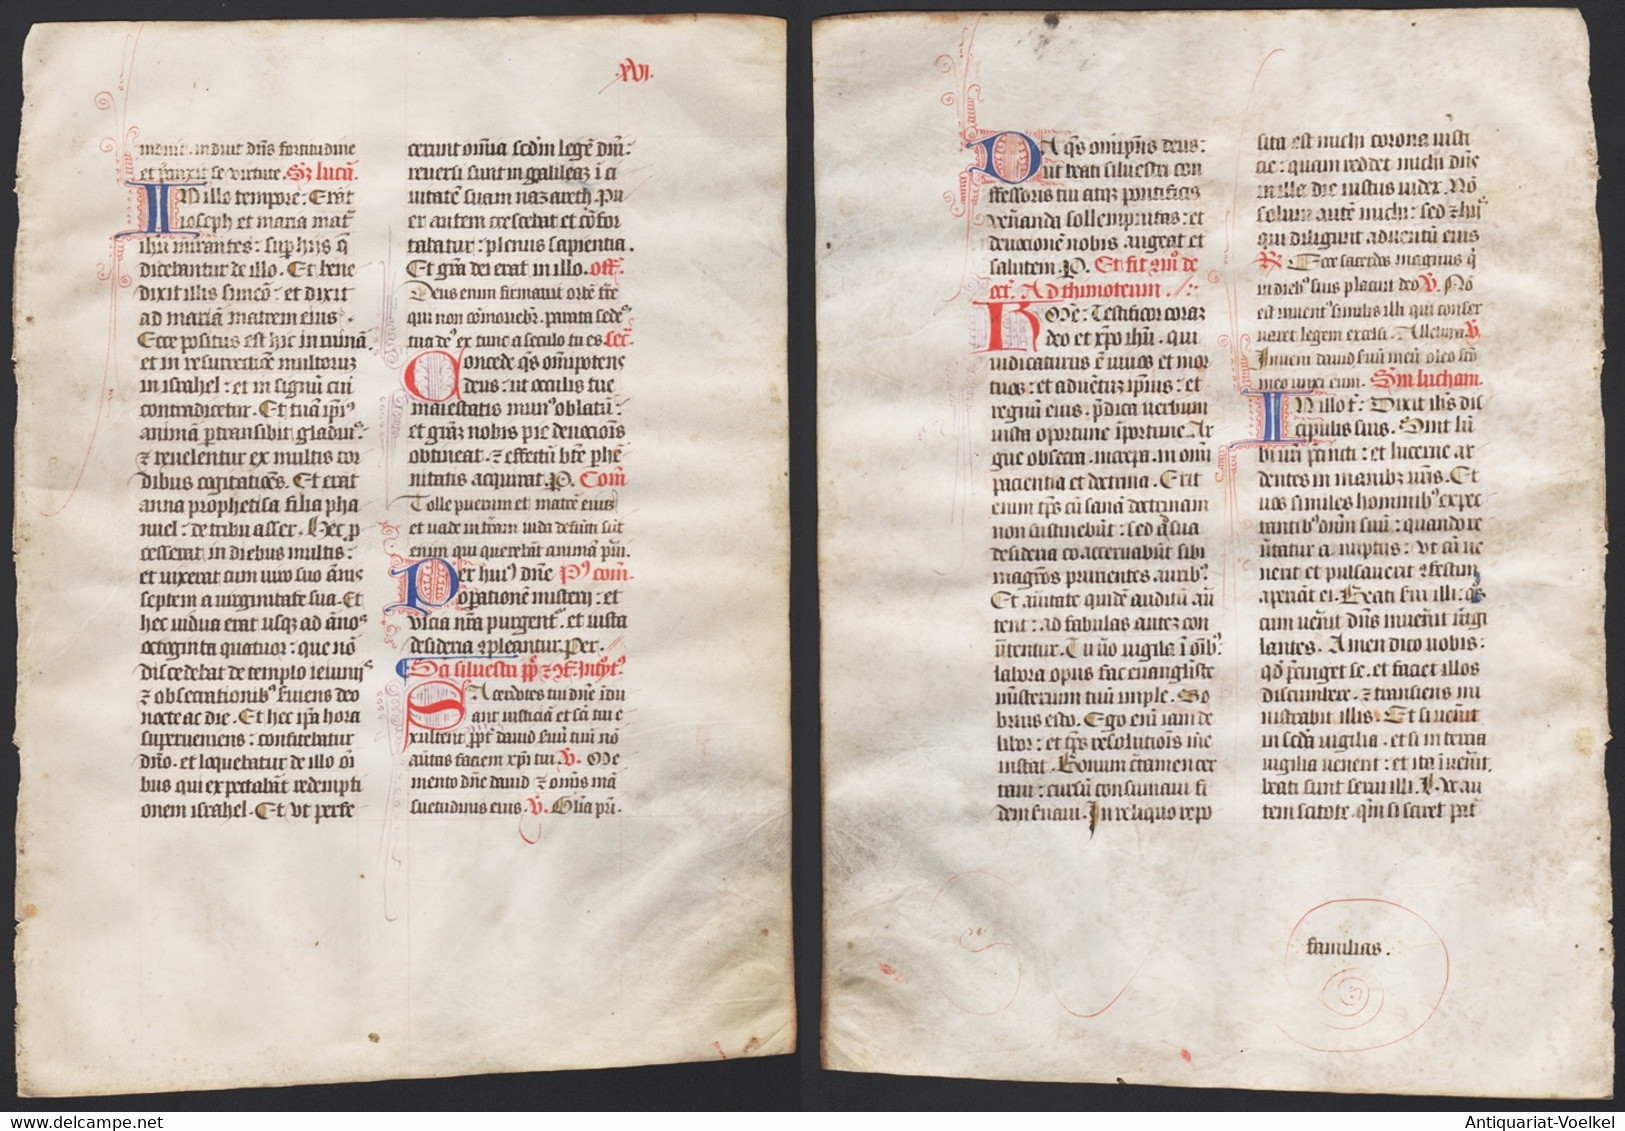 .xvi.
induit. induit dn̄s fortitudine
et p̄cinxit se virtute. S̄z lucā.
IN illo tempore: Erāt
ioseph et maria mat̄
ihū mirantes: sup hijs q̄
dicebantur de illo. Et bene
dixit illis simeō: et dixit
ad mariā matrem eius.
Ecce positus est hic in ruinā.
et in resurrectionē multoruz
in israhel: et in signū cui
contradicetur. Et tuā ip̄iꝰ
animā ꝑtransibit gladiuꝰ.
⁊ reuelentur ex multis cor
dibus cogitatiōes. Et erat
anna prophetisa filia pha
nuel: de tribu asser. Hec ꝓ
cesserat in diebus multis:
et vixerat cum uiro suo ānis
septem a uirginitate sua. Et
hec uidua erat usqꝫ ad ānos
octoginta quatuor: que nō
discedebat de templo ieiunijs
⁊ obsecrationibꝰ seruiens deo
nocte ac die. Et hec ip̄a hora
superueniens: confitebatur
dn̄o. et loquebatur de illo ōi
bus qui expectabāt redempti
onem israhel. Et vt perfe
cerunt om̄ia sedm̄ legē dn̄i:
reuersi sunt in galileaz ī ci
uitatē suam nazareth. Pu
er autem crescebat et cōfor
tabatur: plenus sapientia.
Et grā dei erat in illo. off.
Deus enim firmauit orbē t̄re
qui non cōmouebr̄. parata sedeꝰ
tua deꝰ ex tunc a seculo tu es. sec̄.
Concede qs̄ om̄ipotens
deus: ut oculis tue
maiestatis munꝰ oblatū:
et grāz nobis pie deuociōis
obtineat. ⁊ effectū bt̄e ꝑhe
nitatis acquirat. P. Com̄
Tolle puerum et matrē eius
et uade in t̄ram iuda defūcti sūt
enim qui querebāt animā pu͞i.
Per huiꝰ dn̄e Pꝰ com̄.
oꝑationē misterij: et
vicia nr̄a purgent͛. et iusta
desideria ꝯpleantur. Per.
Sc̄i siluestri pp̄ ⁊ ꝯf. Introꝰ.
SAcerdotes tui dn̄e īdu
ant iusticiā et sc̄i tui e
xultent ꝓpt͛ dauid s͛uū tuū nō
au͛tas faciem xp̄i tui. V. Me
mento dn̄e dauid ⁊ om̄is mā
suetudinis eius. V. Glīa pr̄i.
DA qs̄ om̄ip̄ns deus:
vt beati siluestri con
fessoris tui atqꝫ pontificis
ven͛anda sollempnitas: et
deuocionē nobis augeat et
salutem. P. Et fit ꝯmo de
oct͛. Ad thimoteum.
Kme: Testificor coraz
deo et xp̄o ihū. qui
iudicaturus ē uiuos et mor
tuos: et aduētuz ip̄ius: et
regnū eius. p̄dica uerbum
insta oportune īportune. Ar
gue obsecra. increpa. in omī
paciencia et doctrina. Erit
enim tp̄s cū sanā doctrinam
non sustinebūt: sed ad sua
desideria coaceruabūt sibi
magr̄os prurientes auribꝰ.
Et au͛itate quidē auditū au͛
tent: ad fabulas autez con
u͛tentur. Tu u͛o uigila ī om̄ibꝰ.
labora opus fac euangliste
mīsterium tuū imple. So
brius esto. Ego eni͞ iam de
libor: et tp̄s resolutiōis me
instat. Bonum c͛tamen cer
taui: cursū consumaui fi
dem s͛uaui. In reliquo repo
sita est michi corona iusti
cie: quam reddet michi dn̄e
in illa die iustus iudex. Nō
solum autē michi: sed ⁊ hijs
qui diligunt aduentū eius
R Ecce sacerdos magnus q̄
in diebꝰ suis placuit deo V. Nō
est inuentꝰ similis illi qui conser
uaret legem excelsi. Alleluia V.
Inueni dauid s͛uū meū oleo sc̄o
meo unxi eum. Sm̄ lucham.
IN illo t̄: Dixit ih̄s dis
cipulis suis. Sint lū
bi ur̄i p̄cincti: et lucerne ar
dentes in manibꝫ ur̄is. Et
uos similes hominibꝰ expec
tantibꝰ dn̄m suū: quando re
u͛tatur a nuptijs: vt cū ue
nerit et pulsauerit ꝯfestim
aperiāt ei. Beati s͛ui illi: qs̄
cum uen͛it dn̄s inuen͛it uigi
lantes. Amen dico uobis:
qd̄ p̄cinget se. et faciet illos
discumbere. ⁊ transiens mi
nistrabit illis. Et si uen͛it
in sc̄da uigilia. et si in tercia
uigilia uenerit: et ita īuen͛it.
beati sunt serui illi. Hoc au
tem scitote. qm̄ si sciret pat͛
familias.
Antiquariat-Voelkel